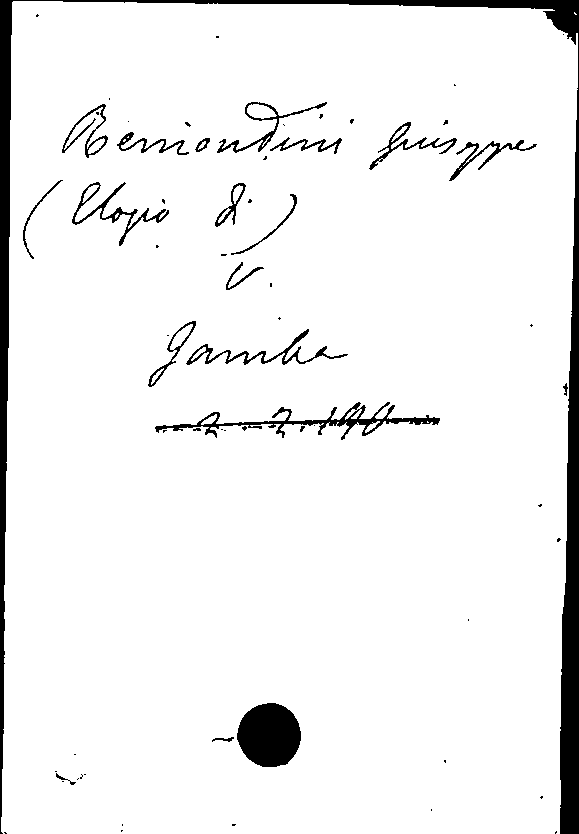 Remondini Giuseppe
(Elogio di)
V.
Gamba
2. 2. 190